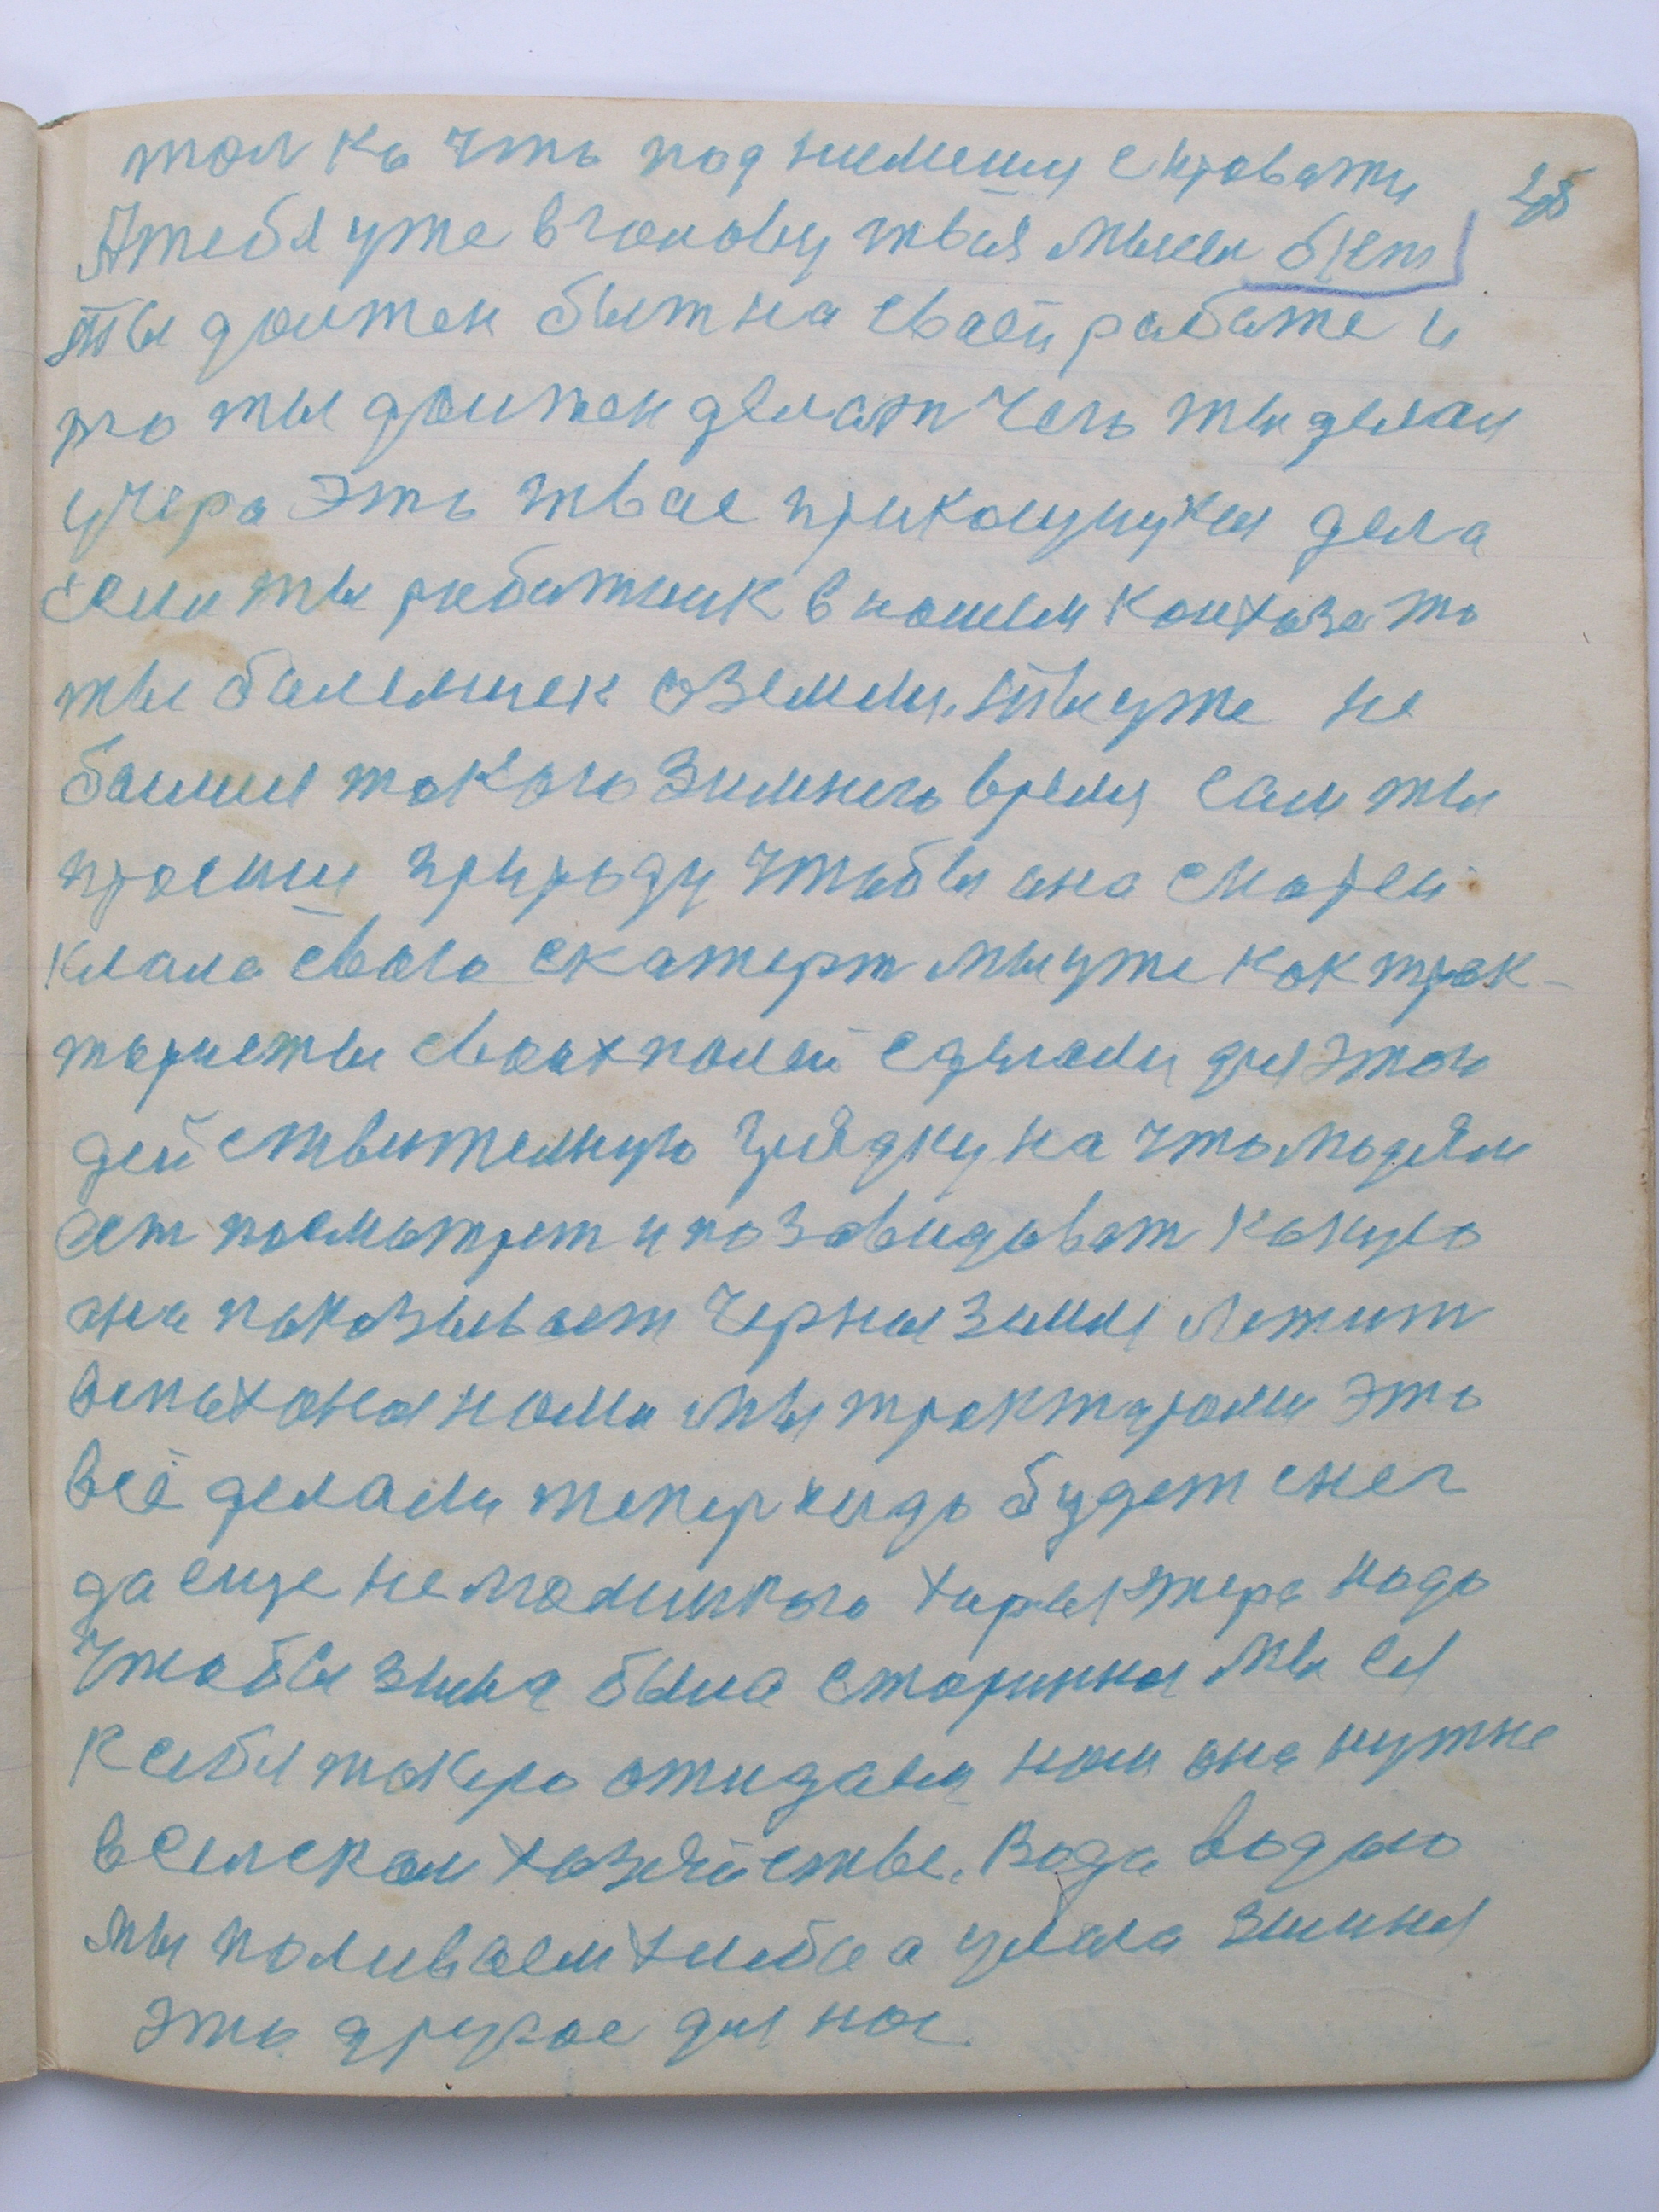 тол ко что поднимешся с кровати
Атебя уже вголову твая мысля бьет
ты должен быт на сваей рабате и
то ты должен делат чего ты делал
учера это твае прикащуцкая дела
если ты работник в нашем колхозе то
ты балелщик оземли. ты уже не
баишся такого зимнего время сам ты
просиш природу чтобы она скорей
клала сваю скатерт мы уже как трак-
тористы своих полей сделали для этого
действителную грядку на что людям
ест посмотрет и позавидоват какую
она показывает черная земля лежит
вспаханая нами мы тракторами это
всё делали тепер надо будет снег
да еще не малинкого характера надо
чтобы зима была старинная мы ея
к себя такую ожидаем нам она нужна
в Селском хозяйстве. Вода водою
мы поливаем хлеба а улага зимная
это другое для нас
25